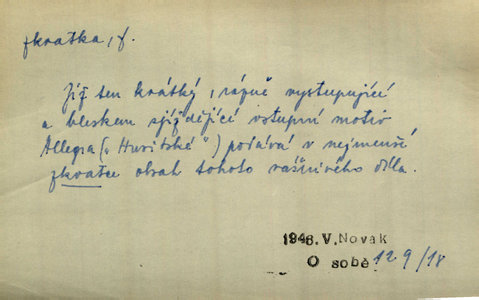 zkratka, f.
Již ten krátký, rázně vystupující
a bleskem sjíždějící vstupní motiv
Allegra („Husitské") podává v nejmenší
zkratce obsah tohoto vášnivého díla.
1946. V. Novák
O sobě 129/18